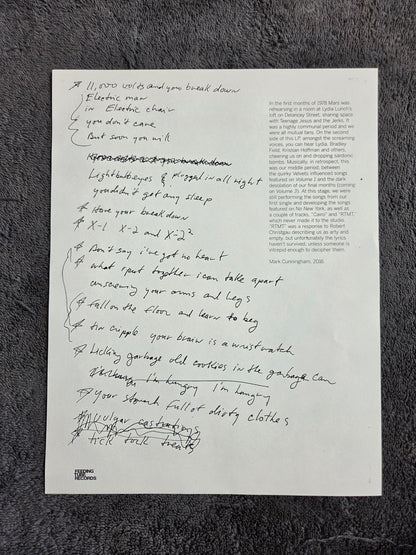 11,000 volts and you break down
Electric man
in Electric chair
you don't care
But soon you will
Lightbulb eyes & plugged in all night
you didn't get any sleep
Have your breakdown
X-1 X-2 and X-2²
Don't say i've got no heart
what i put together i can take apart
unscrewing your arms and legs
fall on the floor and learn to beg
tin cripple your brain is a wrist watch
Licking garbage old cookies in the garbage can
I'm hungry I'm hungry
Your stomach full of dirty clothes
vulgar castrations
tick tock
In the first months of 1978 Mars was
rehearsing in a room at Lydia Lunch's
loft on Delancey Street, sharing space
with Teenage Jesus and the Jerks. It
was a highly communal period and we
were all mutual fans. On the second
side of this LP, amongst the screaming
voices, you can hear Lydia, Bradley
Field, Kristian Hoffman and others,
cheering us on and dropping sardonic
bombs. Musically, in retrospect, this
was our middle period, between
the quirky Velvets influenced songs
featured on Volume 1 and the dark
desolation of our final months (coming
on Volume 3). At this stage, we were
still performing the songs from our
first single and developing the songs
featured on No New York, as well as
a couple of tracks, "Cairo" and "RTMT,"
which never made it to the studio.
"RTMT" was a response to Robert
Christgau describing us as arty and
empty, but unfortunately the lyrics
haven't survived, unless someone is
intrepid enough to decipher them.
Mark Cunningham, 2016
FEEDING
TUBE
RECORDS